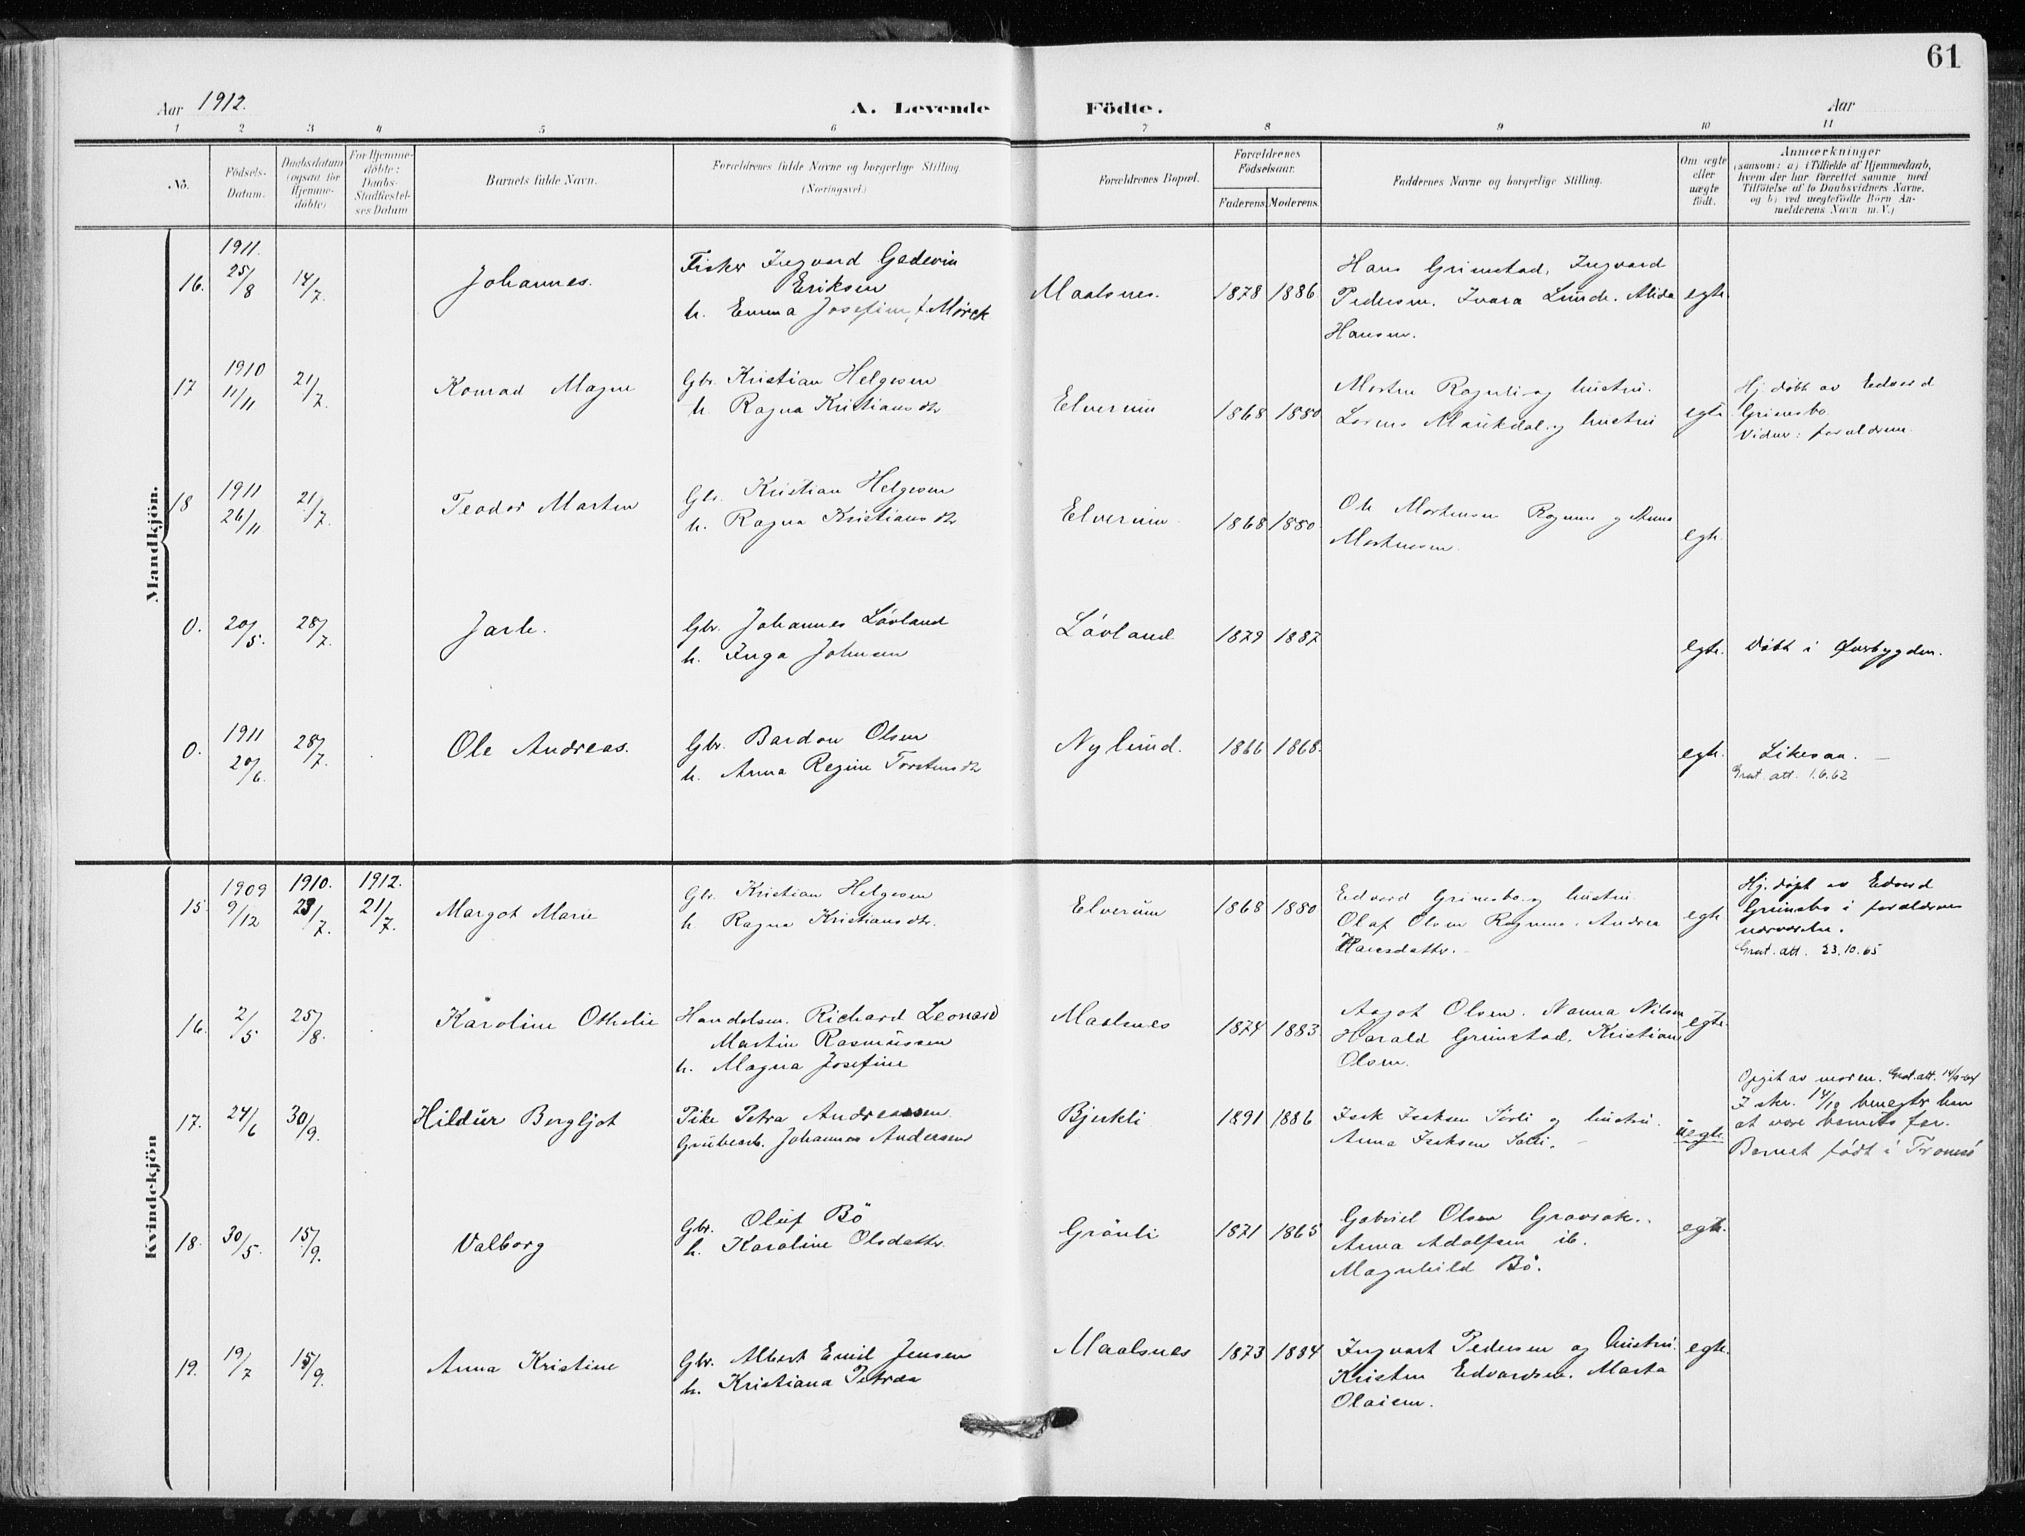 61
Aar 1912. A. Levende Födte. Aar
1 2 3 4 5 6 7 8 9 10 11
No. Födsels-Datum. Daabsdatum (ogsaa for Hjemme-döbte) For Hjemme-döbte: Daabs-Stadfæstel-ses Datum Barnets fulde Navn. Forældrenes fulde Navne og borgerlige Stilling. (Næringsvei.) Forældrenes Bopæl. Forældrenes Födselsaar. Faderens Moderens. Faddernes Navne og borgerlige Stilling. Om ægte eller uægte födt. Anmærkninger (saasom: a) i Tilfælde af Hjemmedaab, hvem der har forrettet samme med Tilföielse af to Daabsvidners Navne, og b) ved uægtefödte Börn An-melderens Navn m. V.)
Mandkjön.
1911.
16. 25/8 14/7. Johannes. Fisker Ingvard Gedevin
Eriksen
h. Emma Josefine f. Mørck
Maalsnes. 1878 1886
Hans Grimstad, Ingvard
Pedersen. Ivara Lunde. Alida
Hansen.
egte
1910
17 11/11 21/7. Konrad Magne
Gbr. Kristian Helgesen
h. Ragna Kristiansdtr
Elverum 1868 1880
Morten Rognli og hustru.
Lorens Maukdal og hustru
egte
Hj. døbt av Edvard
Grimsbo
Vidner: forældrene.
1911
18 26/11 21/7. Teodor Martin
Gbr. Kristian Helgesen
h. Ragna Kristiansdtr
Elverum. 1868 1880.
Ole Mortensen Rognmo og Anna
Mortensen.
egte.
0. 20/5. 28/7. Jarle.
Gbr. Johannes Løvland
h. Inga Johnsen
Løvland 1879 1887
egte. Døbt i Øverbygden.
1911
0. 20/6. 28/7. Ole Andreas.
Gbr. Bardon Olsen
h. Anna Regine Torstensdtr
Nylund. 1866 1868.
egte. Likesaa. —
Grat. att. 1.6.62
Kvindekjön
1909 1910. 1912.
15. 9/12 23/7. 21/7. Margot Marie
Gbr. Kristian Helgesen
h Ragna Kristiansdtr.
Elverum 1868 1880
Edvard Grimsbo og hustru
Olaf Olsen Rognmo. Andrea
Hansdatter. -
egte
Hj. døpt av Edvard
Grimsbo i forældrenes
nærværelse.
Grat. att. 23.10.65
16. 2/5 25/8. Karoline Othelie
Handelsm. Richard Leonard
Martin Rasmussen
h. Magna Josefine
Maalsnes 1874 1883
Aagot Olsen. Nanna Nilsen
Harald Grimstad, Kristian
Olsen.
egte
17. 24/6 30/9. Hildur Bergljot
Pike Petra Andreassen
Grubearb. Johannes Andersen
Bjerkli 1891 1886
Isak Isaksen Sørli og hustru.
Anna Isaksen
uegte.
Opgit av moren. Grat. att.
I skr. 14/10 benegter han
at være barnets far.
Barnet født i Tromsø
18. 30/5. 15/9. Valborg
Gbr. Oluf Bö
h. Karoline Olsdatter.
Grönli 1871 1865
Gabriel Olsen Gravsak.
Anna Adolfsen ib.
Magnhild Bö.
egte.
19. 19/7 15/9. Anna Kristine
Gbr. Albert Emil Jensen
h. Kristiana Petrea
Maalsnes 1873 1884
Ingvart Pedersen og hustru.
Kristen Edvardsen. Marta
Olaisen.
egte.